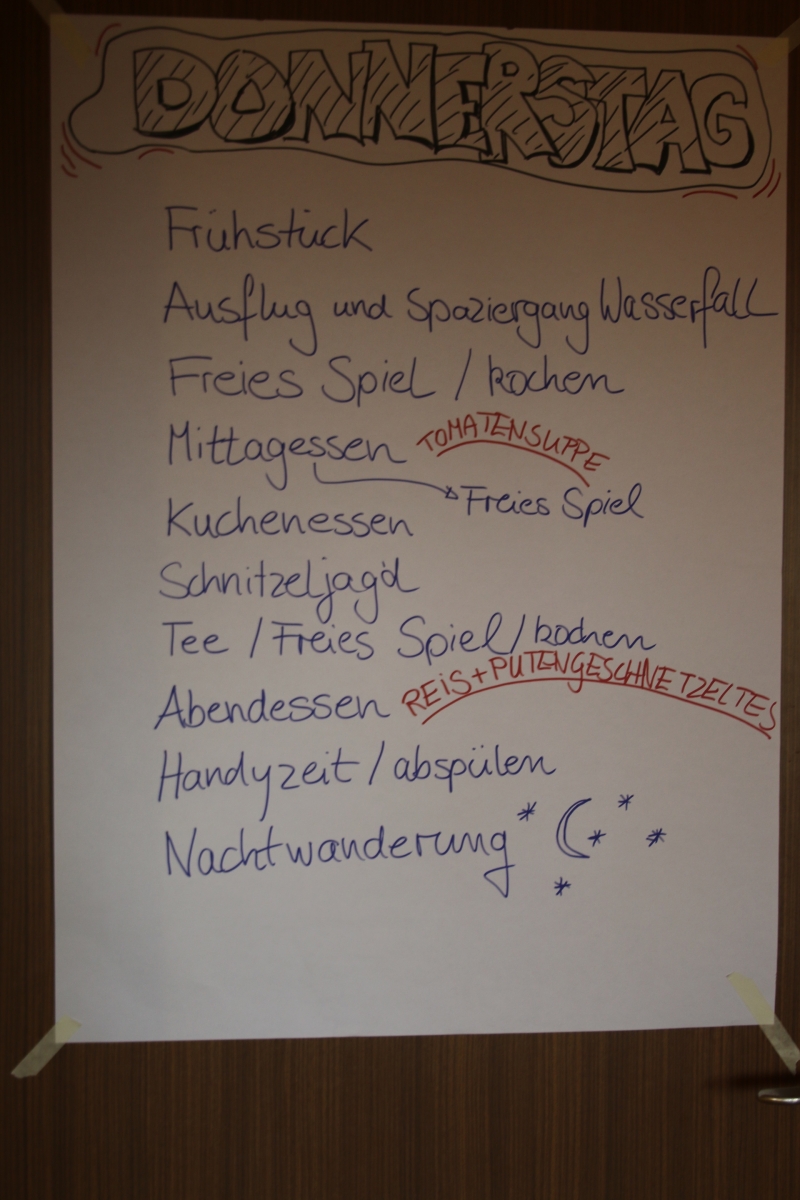 DONNERSTAG
Frühstück
Ausflug und Spaziergang Wasserfall
Freies Spiel / kochen
Mittagessen TOMATENSUPPE
Freies Spiel
Kuchenessen
Schnitzeljagd
Tee / Freies Spiel / kochen
Abendessen REIS + PUTENGESCHNETZELTES
Handyzeit / abspülen
Nachtwanderung